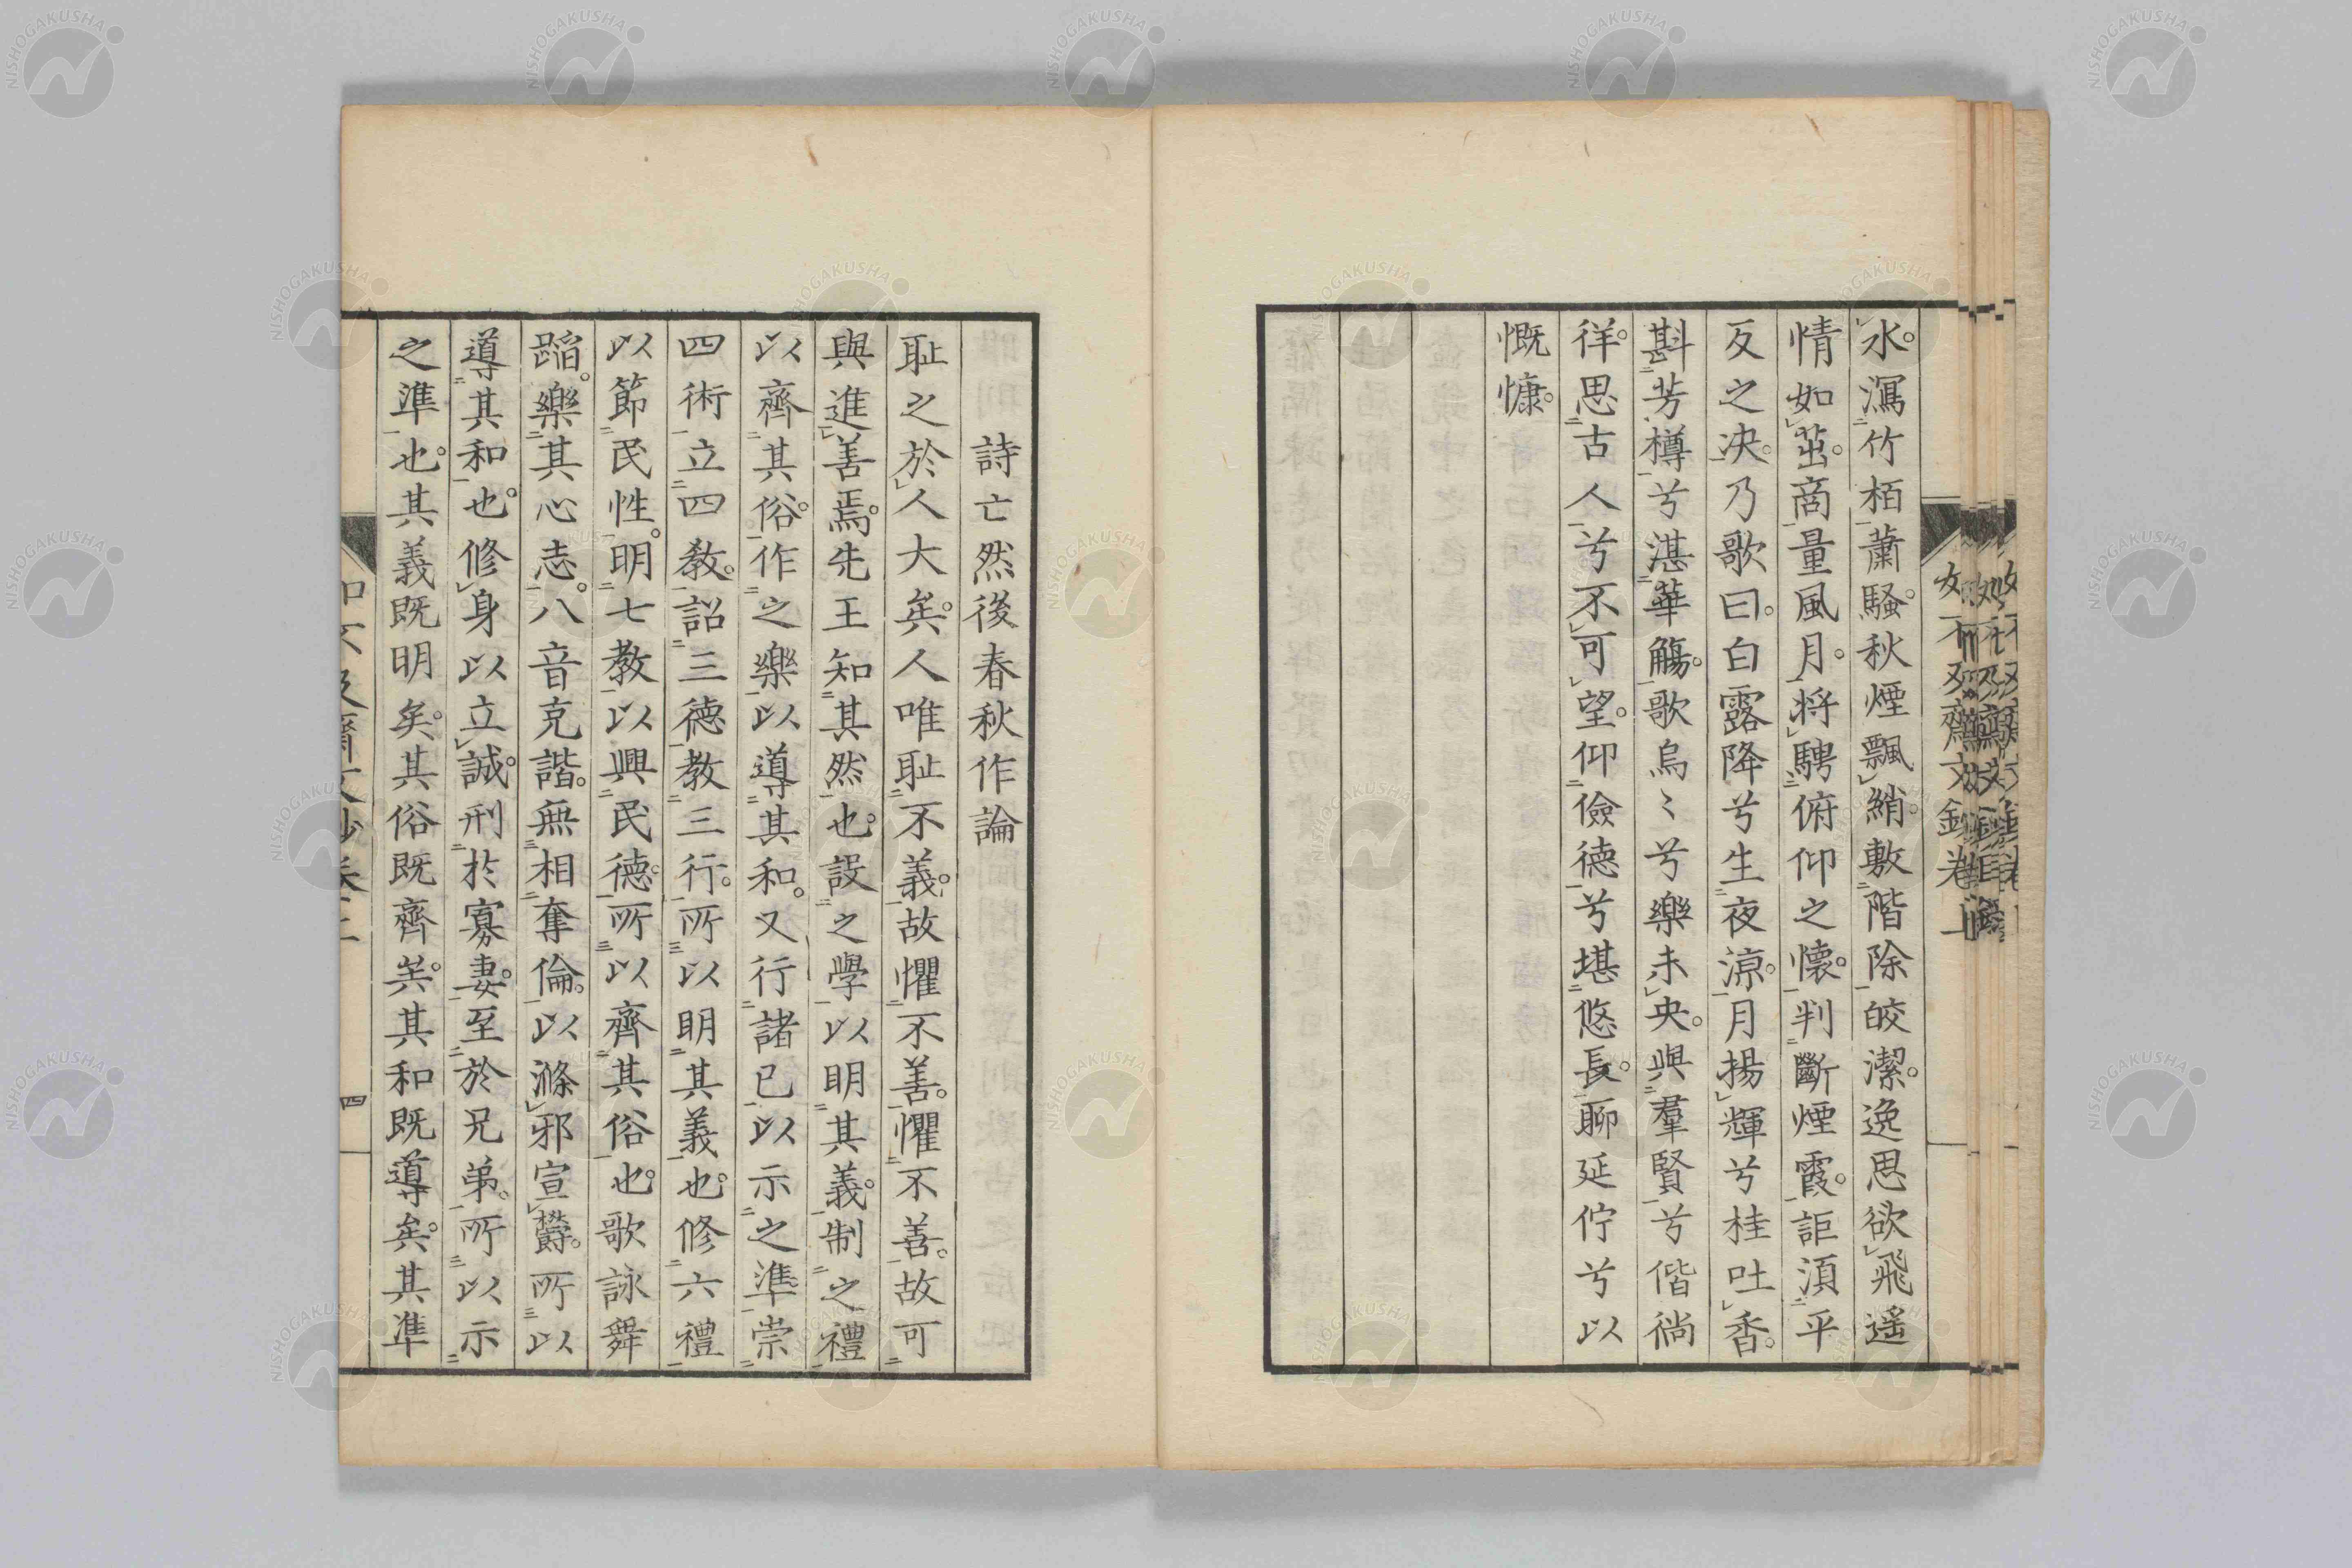 水。瀉竹栢蕭騷。秋煙飄綃。敷階除皎潔。逸思欲飛遥
情如茁。商量風月。將騁俯仰之懷。判斷煙霞。詎須平
反之决。乃歌曰。白露降兮生夜涼。月揚輝兮桂吐香。
斟芳樽兮湛華觴。歌烏〻兮樂未央。與羣賢兮偕徜
徉。思古人兮不可望。仰儉德兮堪悠長。聊延佇兮以
慨慷。
詩亡然後春秋作論
耻之於人大矣。人唯耻不義。故懼不善。懼不善。故可
與進善焉。先王知其然也。設之學以明其義。制之禮
以齊其俗。作之樂以導其和。又行諸已以示之準。崇
四術立四教。詔三德教三行。所以明其義也。修六禮
以節民性。明七教以興民德。所以齊其俗也。歌詠舞
蹈。樂其心志。八音克諧。無相奪倫。以滌邪宣欝。所以
導其和也。修身以立誠。刑於寡妻。至於兄弟。所以示
之準也。其義既明矣。其俗既齊矣。其和既導矣。其準
四